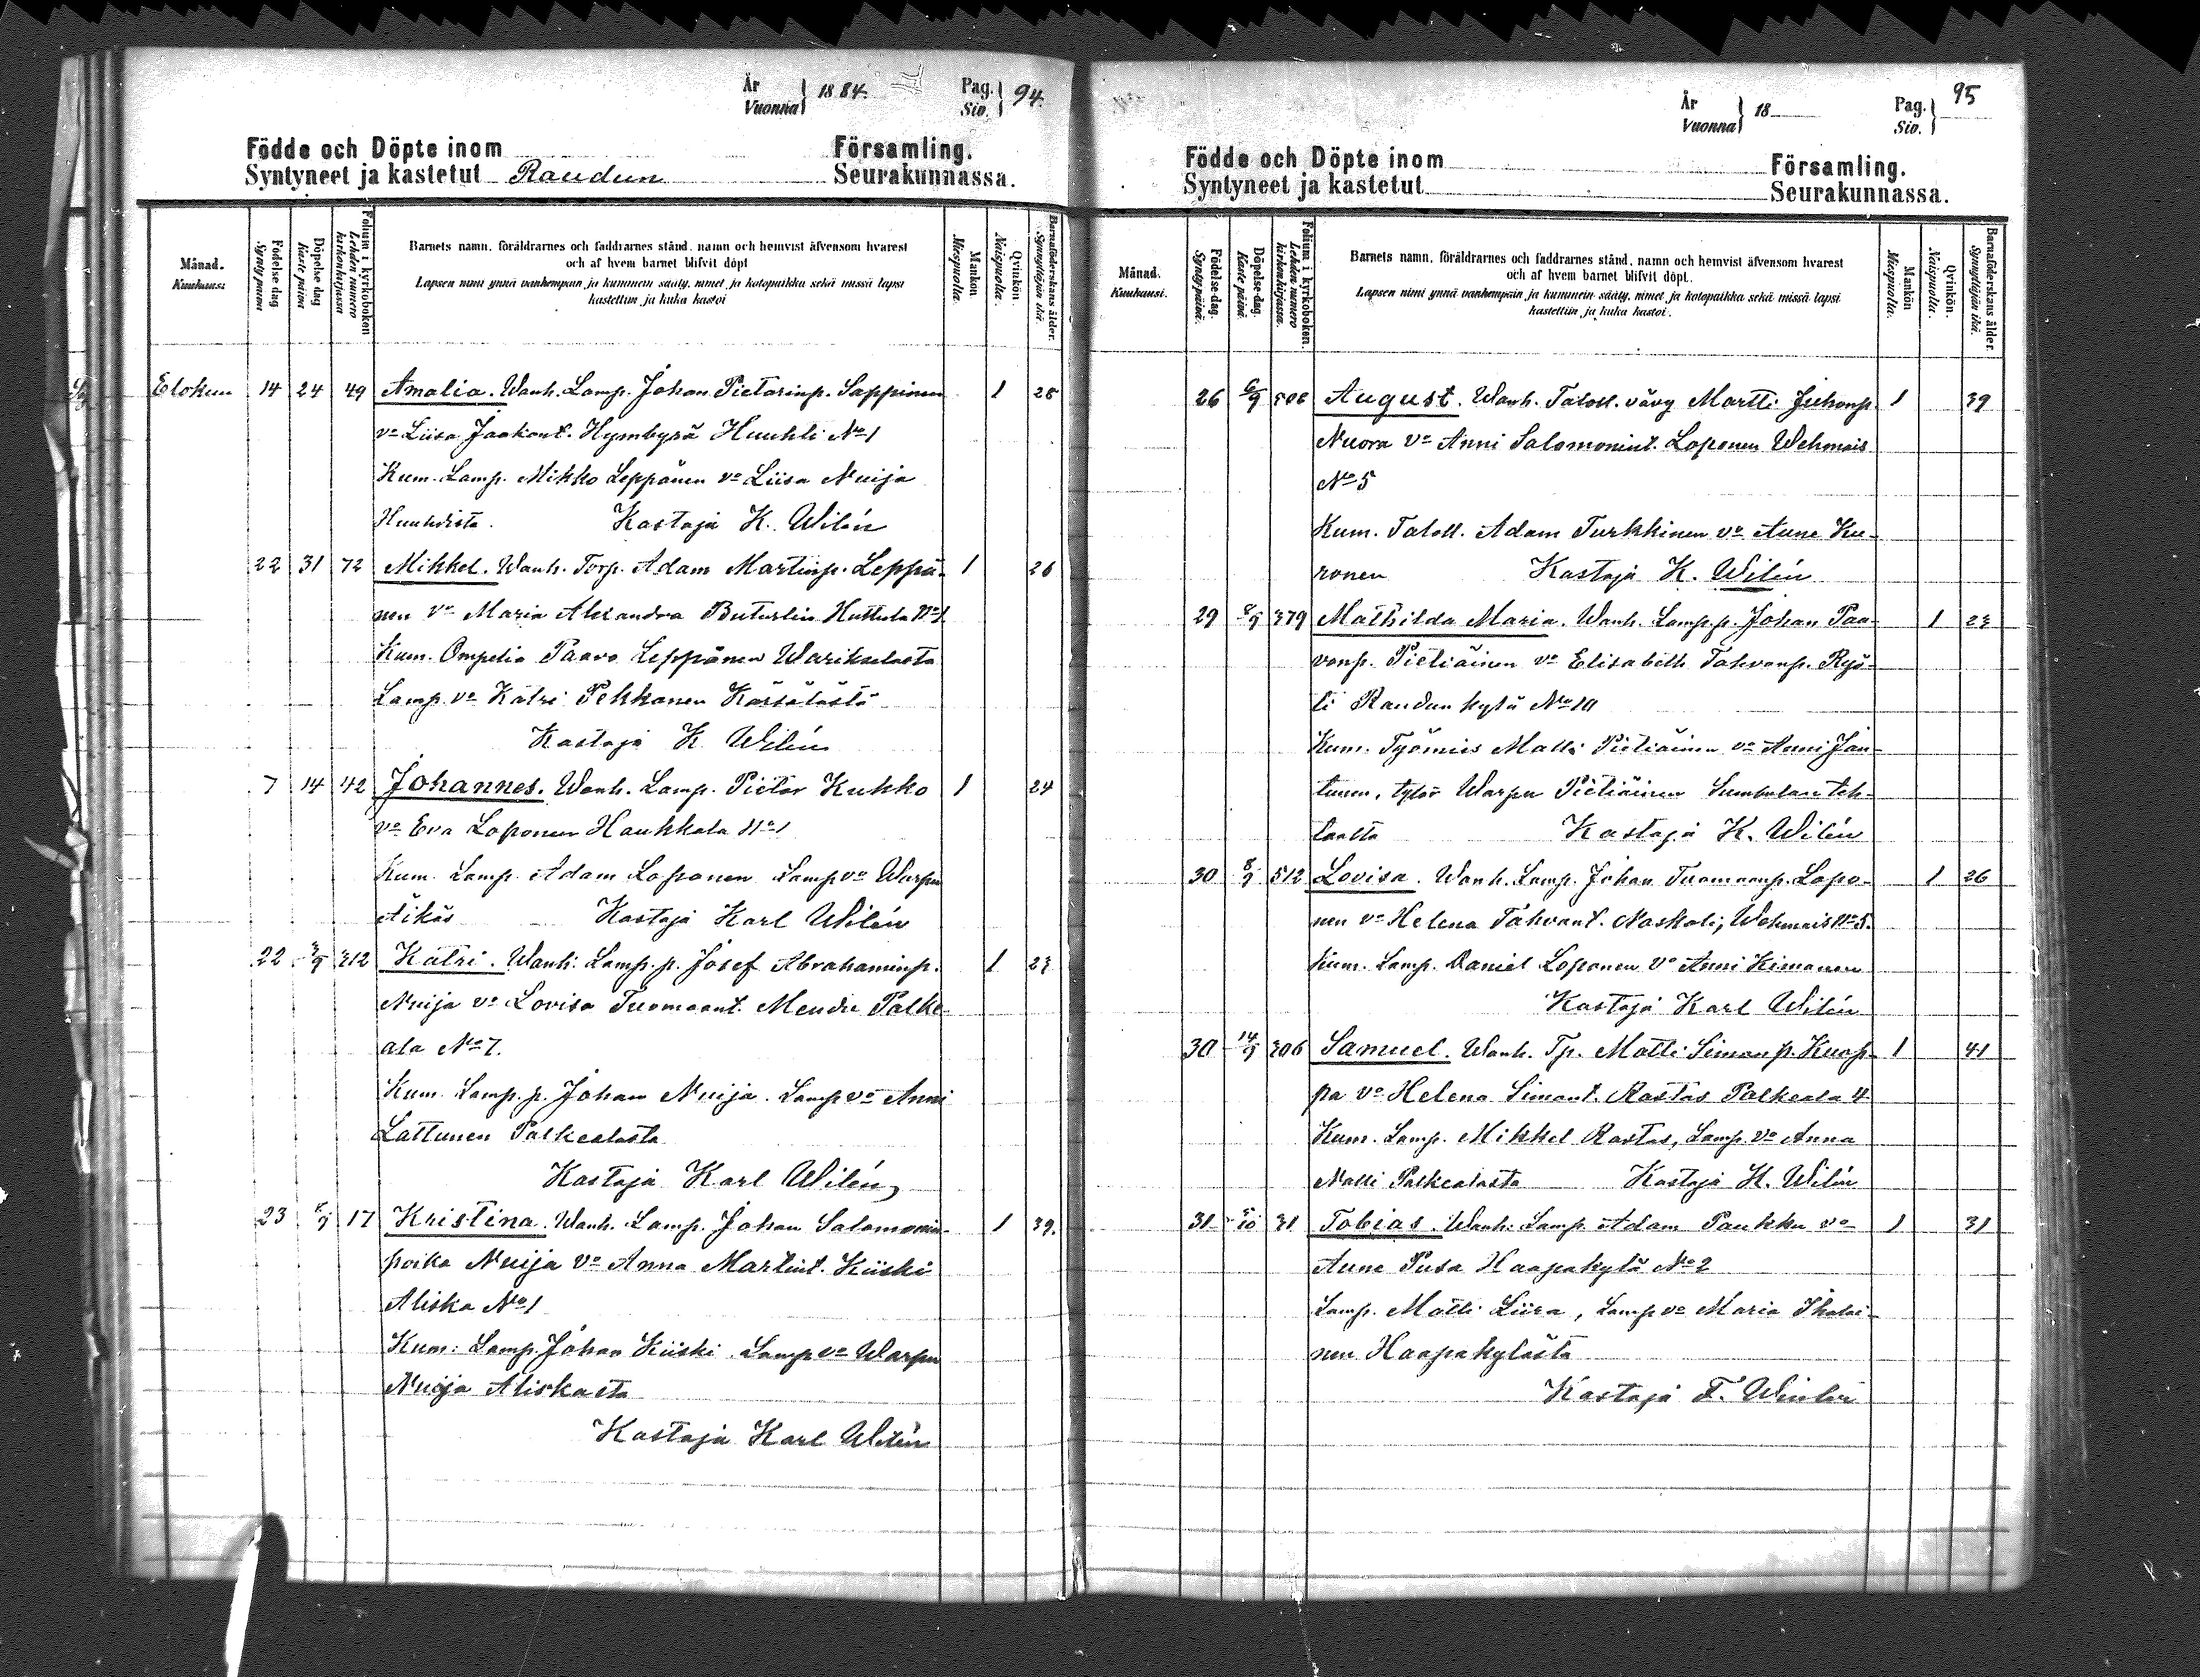 År Vuonna } 1884. Pag. Siv. } 94.
Födde och Döpte inom Församling.
Syntyneet ja kastetut Raudun Seurakunnassa.
Månad. Kuukausi
Födelse dag Synty päivä
Döpelse dag Kaste päivä
Folium i kyrkoboken Lehden numero kirkonkirjassa
Barnets namn, föräldrarnes och faddrarnes stånd, namn och hemvist äfvensom hvarest
och af hvem barnet blifvit döpt
Lapsen nimi ynnä vanhempain ja kummein sääty, nimet ja kotopaikka sekä missä lapsi
kastettiin ja kuka kastoi
Mankön Miespuolta.
Qvinkön. Naispuolta.
Barnaföderskans ålder. Synnyttäjän ikä.
Elokuu 14 24 49 Amalia. Wanh. Lamp. Johan Pietarinp. Sappinen 1 28
vo Liisa Jaakont. Hymbyrä Huuhti No 1
Kum. Lamp. Mikko Leppänen vo Liisa Nuija
Huuhdista. Kastaja K. Wilén
22 31 72 Mikkel. Wanh. Torp. Adam Martinp. Leppä- 1 26
nen vo Maria Alexandra Buturlin Huttula No 1
Kum. Ompelia Paavo Leppänen Warikselasta
Lamp. vo Katri Pekkanen Kärsälästä
Kastaja K. Wilén
7 14 42 Johannes. Wanh. Lamp. Pietar Kukko 1 24
vo Eva Loponen Haukkala No 1
Kum. Lamp. Adam Loponen Lamp vo Warpu
Äikäs Kastaja Karl Wilén
22 3/9 312 Katri. Wanh. Lamp. p. Josef Abrahaminp. 1 23
Nuija vo Lovisa Tuomaant. Mendre Palke-
ala No 7.
Kum. Lamp. p. Johan Nuija. Lamp vo Anni
Lattunen Palkealasta
Kastaja Karl Wilén
23 /9 17 Kristina. Wanh. Lamp. Johan Salomonin- 1 39.
poika Nuija vo Anna Martint. Kiiski
Aliska No 1
Kum: Lamp. Johan Kiiski. Lamp vo Warpu
Nuija Aliskasta
Kastaja Karl Wilén
År Vuonna } 18 Pag. Siv. } 95
Födde och Döpte inom Församling.
Syntyneet ja kastetut Seurakunnassa.
Månad. Kuukausi.
Födelse-dag. Synty päivä.
Döpelse-dag. Kaste päivä.
Folium i kyrkoboken. Lehden numero kirkonkirjassa.
Barnets namn, föräldrarnes och faddrarnes stånd, namn och hemvist äfvensom hvarest
och af hvem barnet blifvit döpt.
Lapsen nimi ynnä vanhempain ja kummein sääty, nimet ja kotopaikka sekä missä lapsi
kastettiin ja kuka kastoi.
Mankön Miespuolta.
Qvinkön. Naispuolta.
Barnaföderskans ålder. Synnyttäjän ikä.
26 6/9 508 August. Wanh. Taloll. vävy Martti Juhonp. 1 39
Nuora vo Anni Salomonint. Loponen Wehmais
No 5
Kum. Taloll. Adam Turkkinen vo Aune Ku-
ronen Kastaja K. Wilén
29 8/9 379 Mathilda Maria. Wanh. Lamp. p. Johan Paa- 1 23
vonp. Pietiäinen vo Elisabeth Tahvonp. Ryö-
ti Raudun kylä No 10
Kum. Työmies Matti Pietiäinen vo Anni Jan-
tunen, tytär Warpu Pietiäinen Sumbulan teh-
taalta Kastaja K. Wilén
30 8/9 512 Lovisa. Wanh. Lamp. Johan Tuomaanp. Lopo- 1 26
nen vo Helena Tahvant. Naskali, Wehmais No 5.
Kum. Lamp. Daniel Loponen vo Anni Kimanen
Kastaja Karl Wilén
30 14/9 306 Samuel. Wanh. Tp. Matti Simonp. Kuop- 1 41
pa vo Helena Simont. Rastas Palkeala 4
Kum. Lamp. Mikkel Rastas, Lamp. vo Anna
Nalli Palkealasta Kastaja K. Wilén
31 5/10 31 Tobias. Wanh. Lamp. Adam Paukku vo 1 31
Aune Pusa Haapakylä No 2
Lamp. Matti Liira, Lamp vo Maria Ihalai-
nen Haapakylästä
Kastaja F. Winter